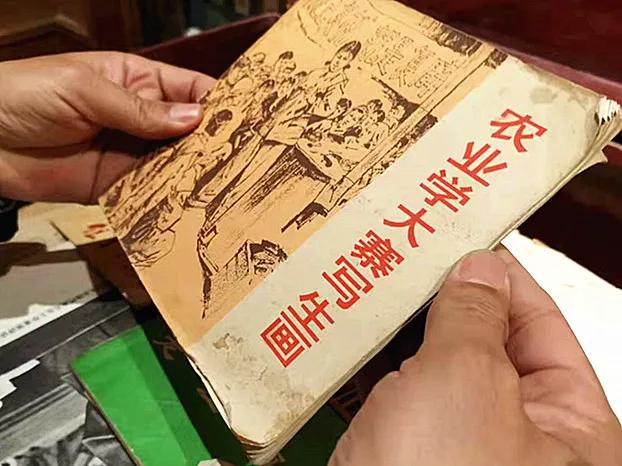 农业学大寨写生画